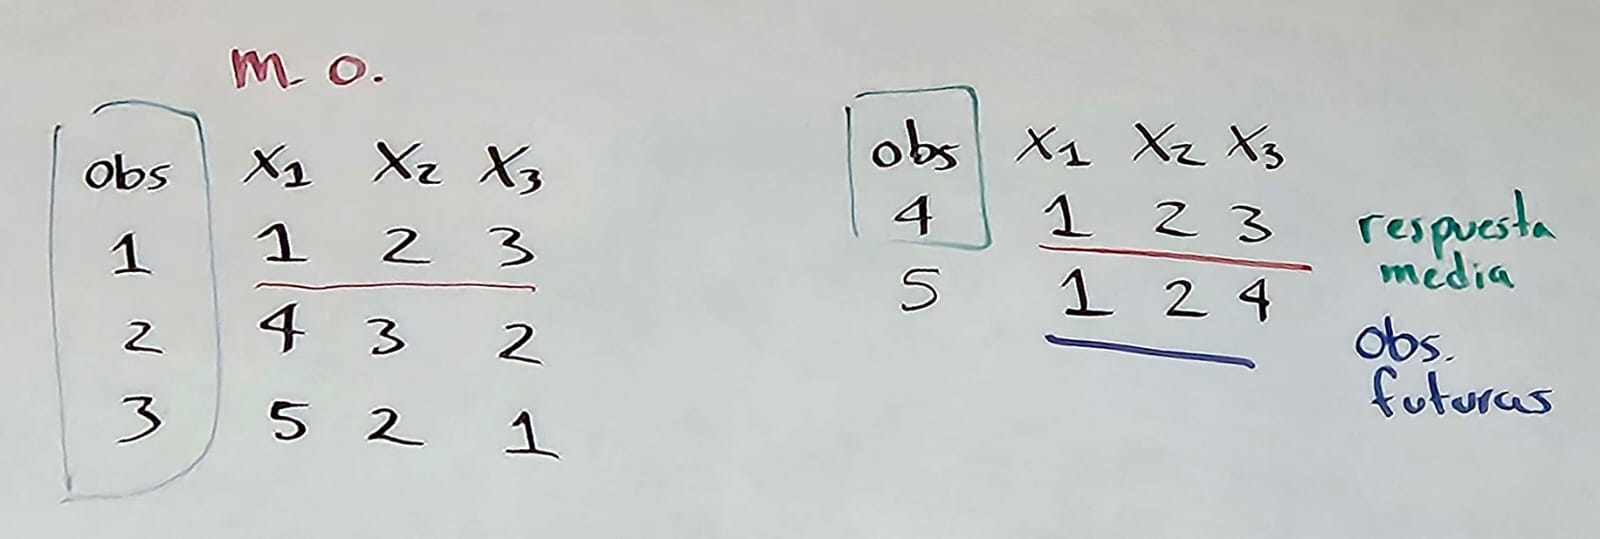 m. o.
obs X1 X2 X3
1 1 2 3
2 4 3 2
3 5 2 1
obs X1 X2 X3
4 1 2 3
5 1 2 4
respuesta
media
obs.
futuras